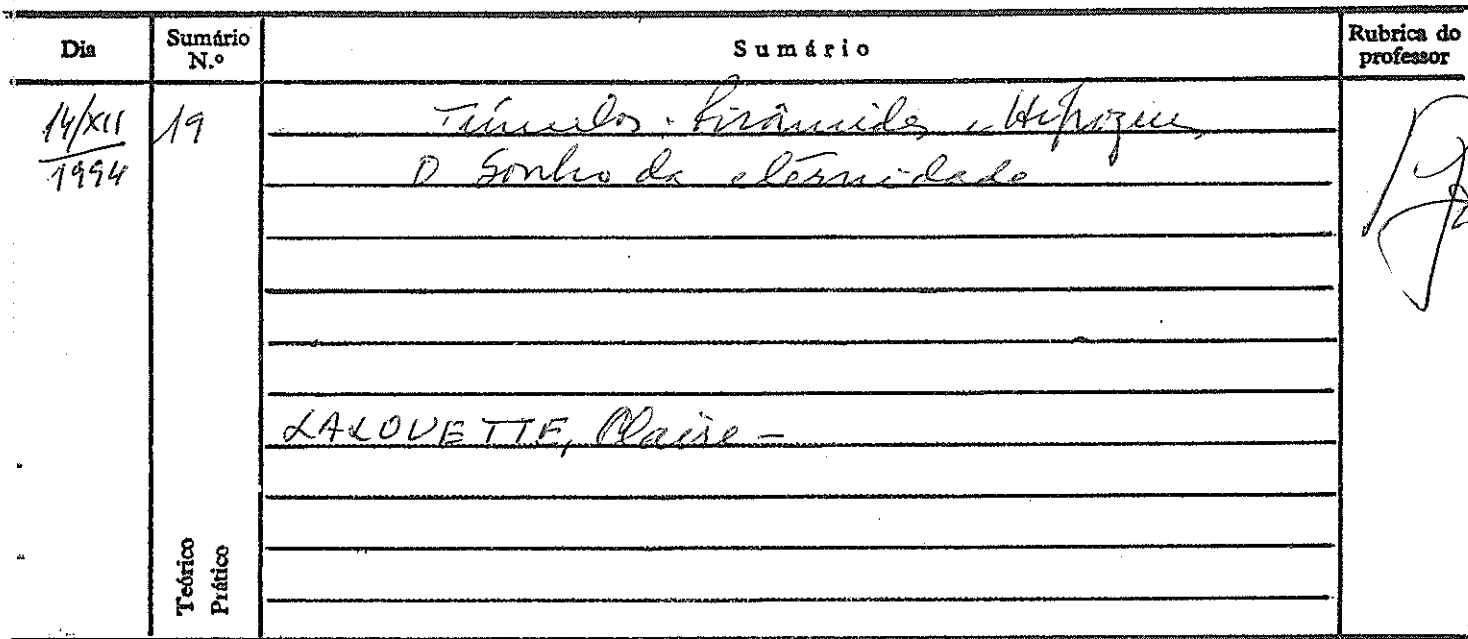 Dia Sumário N.º Sumário Rubrica do professor
14/XII 1994 19 Túmulos. Pirâmides e Hipogeus
O Sonho da eternidade
LALOUETTE, Claire –
Teórico
Prático